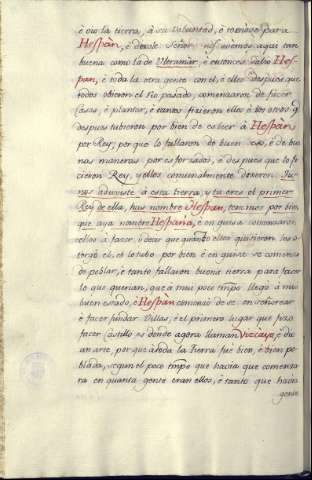 é oio la tierra, á su Voluntad, é tornóse para
Hespán, é dexole Señor nos avemos aqui tan
buena como la de Ultramár, é entonces salio Hes-
pan, é toda la otra gente con él, é ellos despues que
todos obieron el Rio pasado, comenzaron de facer
Casas, é plantar, é tantas ficieron ellos é los otros q
despues tubieron por bien de coger á Hespán
por Rey, por que lo fallaron de buen seso, é de bue
nas maneras por esforzado, é despues que lo fi
cieron Rey, y ellos comunalmente dixeron Tu
nos aduxiste á esta tierra, y tu eres el primer
Rey de ella, has nombre Hespan, tenemos por bien
que aya nombre Hespaña, é en guisa comenzaron
ellos á facer, é decir que quanto ellos quisieron les o
torgó él, et lo tubo por bien é en guisa se comenzó
de poblar, é tanto fallaron buena tierra para facer
lo que querian, que á mui poco tmpo llegó á mui
buen estado, é Hespán comenzó de se enseñorear
é facer fundar Villas, é el primero lugar que fizo
facer Castillo es donde agora llaman Vizcaya, é de
un arte, por que á toda la tierra fue bien, é bien po
blada, segun el poco tmpo que havia que comenza
ra en quanta gente eran ellos, é tanto que havia
gente